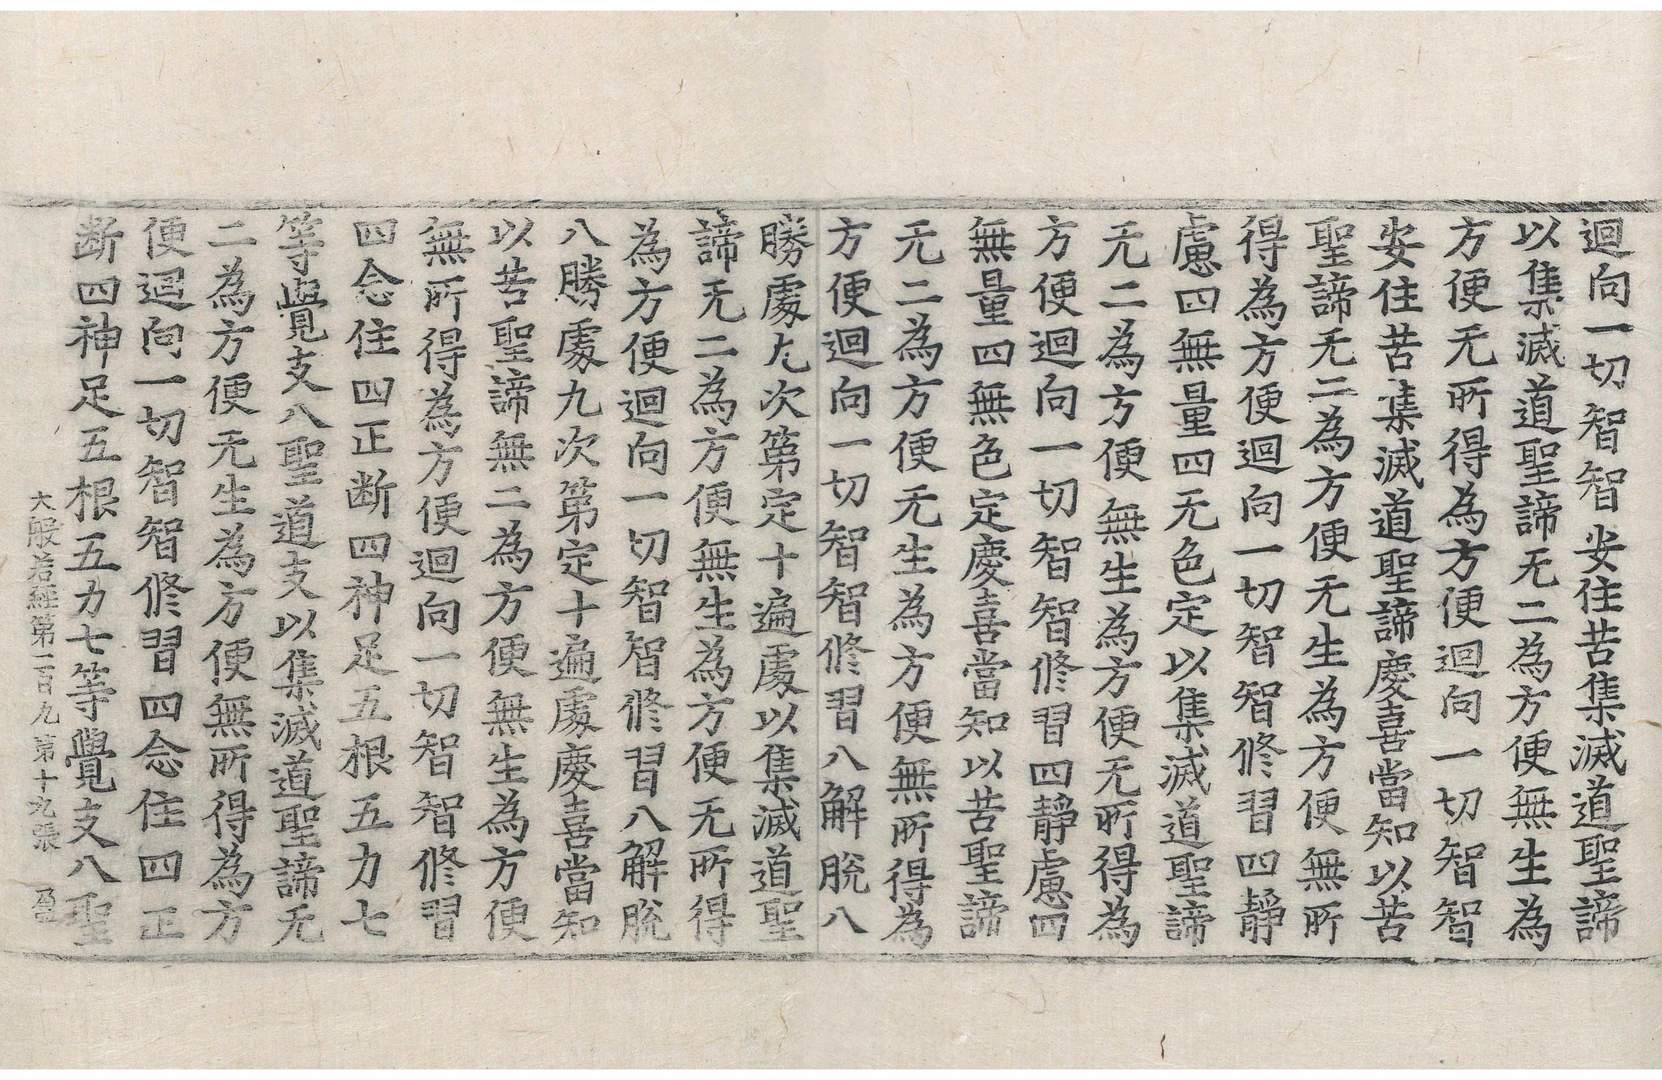 迴向一切智智安住苦集滅道聖諦
以集滅道聖諦无二為方便無生為
方便无所得為方便迴向一切智智
安住苦集滅道聖諦慶喜當知以苦
聖諦无二為方便无生為方便無所
得為方便迴向一切智智修習四靜
慮四無量四无色定以集滅道聖諦
无二為方便無生為方便无所得為
方便迴向一切智智修習四靜慮四
無量四無色定慶喜當知以苦聖諦
无二為方便无生為方便無所得為
方便迴向一切智智修習八解脫八
勝處九次第定十遍處以集滅道聖
諦无二為方便無生為方便无所得
為方便迴向一切智智修習八解脫
八勝處九次第定十遍處慶喜當知
以苦聖諦無二為方便無生為方便
無所得為方便迴向一切智智修習
四念住四正断四神足五根五力七
等覺支八聖道支以集滅道聖諦无
二為方便无生為方便無所得為方
便迴向一切智智修習四念住四正
断四神足五根五力七等覺支八聖
大般若經第一百九 第十九張 盈